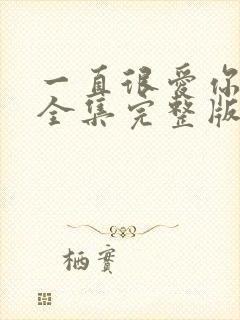 一直很爱你
全集完整版
栖實